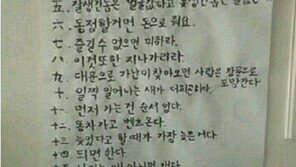 五. 잘생긴놈은 얼굴값하고
六. 동정할거면 돈으로 줘요.
七. 즐길수 없으면 피하라.
八. 이것또한 지나가리라
九. 대문으로 가난이 찾아오면 사랑은 창문으로
도망간다
十. 일찍 일어나는 새가 더피곤하다.
十一. 먼저 가는건 순서 없다.
十二. 똥차가고 벤츠온다.
十三. 늦었다고 할 때가 가장 늦은거다
十四. 되면 한다.